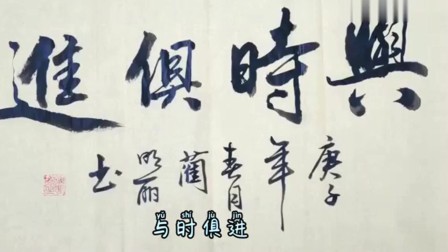 與時俱進
庚子
年
春月
蘭
明丽
书
yǔ shí jù jìn
与时俱进